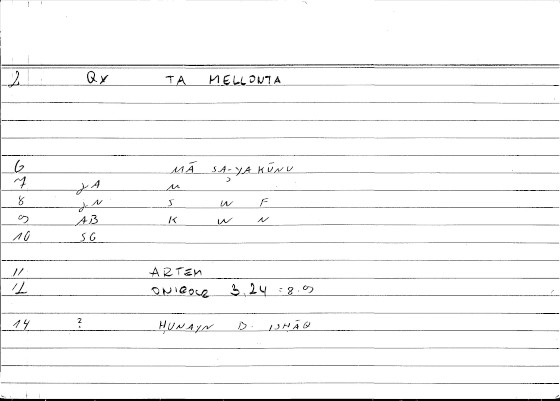 2 Qx TA MELLONTA
6 MĀ SA-YAKŪNU
7 gA M
8 gN S W F
9 AB K W N
10 SG
11 ARTEM
12 ONIROCR 3,24 = 8.9
14 ? ḤUNAYN B. ISḤĀQ